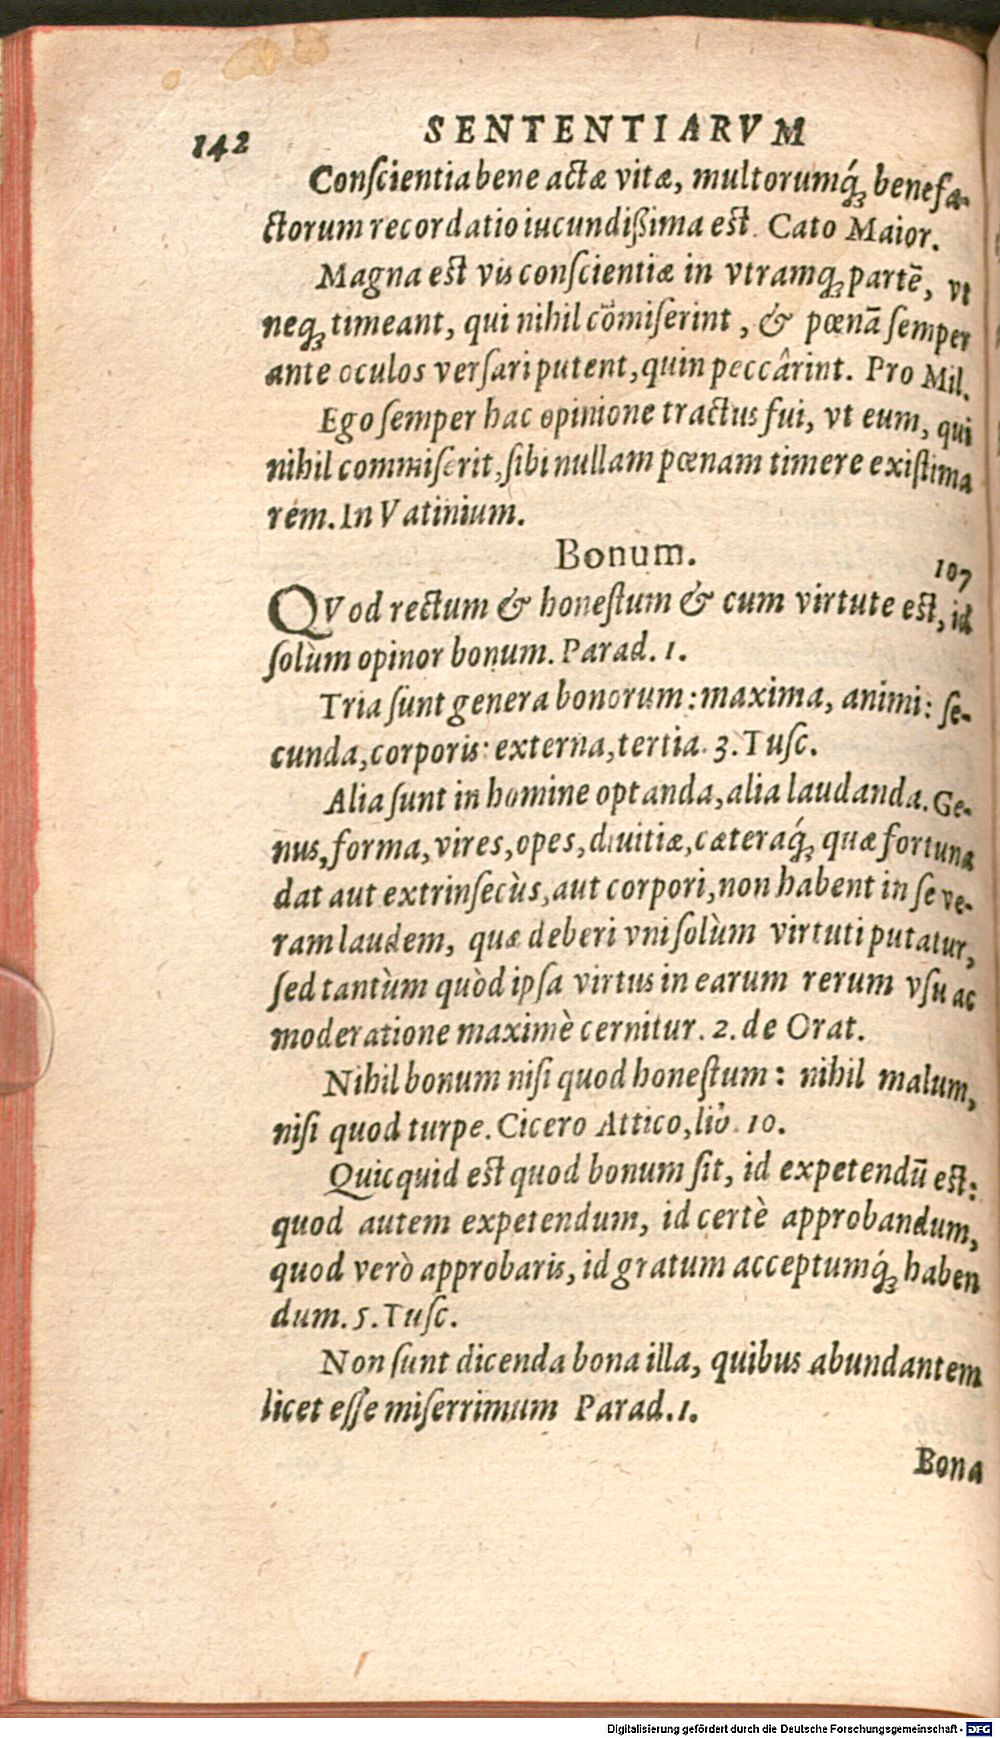 142 SENTENTIARVM
Conſcientia bene actæ vitæ, multorumq́; benefa-
ctorum recordatio iucundißima est. Cato Maior.
Magna est vis conſcientiæ in vtramq; partē, vt
neq; timeant, qui nihil cōmiſerint, & pœnā ſemper
ante oculos verſari putent, quin peccârint. Pro Mil.
Ego ſemper hac opinione tractus fui, vt eum, qui
nihil commiſerit, ſibi nullam pœnam timere exiſtima
rem. In Vatinium.
Bonum. 107
QVod rectum & honeſtum & cum virtute est, id
ſolùm opinor bonum. Parad. 1.
Tria ſunt genera bonorum: maxima, animi: ſe-
cunda, corporis: externa, tertia. 3. Tuſc.
Alia ſunt in homine optanda, alia laudanda. Ge-
nus, forma, vires, opes, diuitiæ, cæteraq́; quæ fortuna
dat aut extrinſecùs, aut corpori, non habent in ſe ve-
ram laudem, quæ deberi vni ſolùm virtuti putatur,
ſed tantùm quòd ipſa virtus in earum rerum vſu ac
moderatione maximè cernitur. 2. de Orat.
Nihil bonum niſi quod honeſtum: nihil malum,
niſi quod turpe. Cicero Attico, lib. 10.
Quicquid est quod bonum ſit, id expetendū est:
quod autem expetendum, id certè approbandum,
quod verò approbaris, id gratum acceptumq́; haben
dum. 5. Tuſc.
Non ſunt dicenda bona illa, quibus abundantem
licet eſſe miſerrimum Parad. 1.
Bona
Digitalisierung gefördert durch die Deutsche Forschungsgemeinschaft - DFG